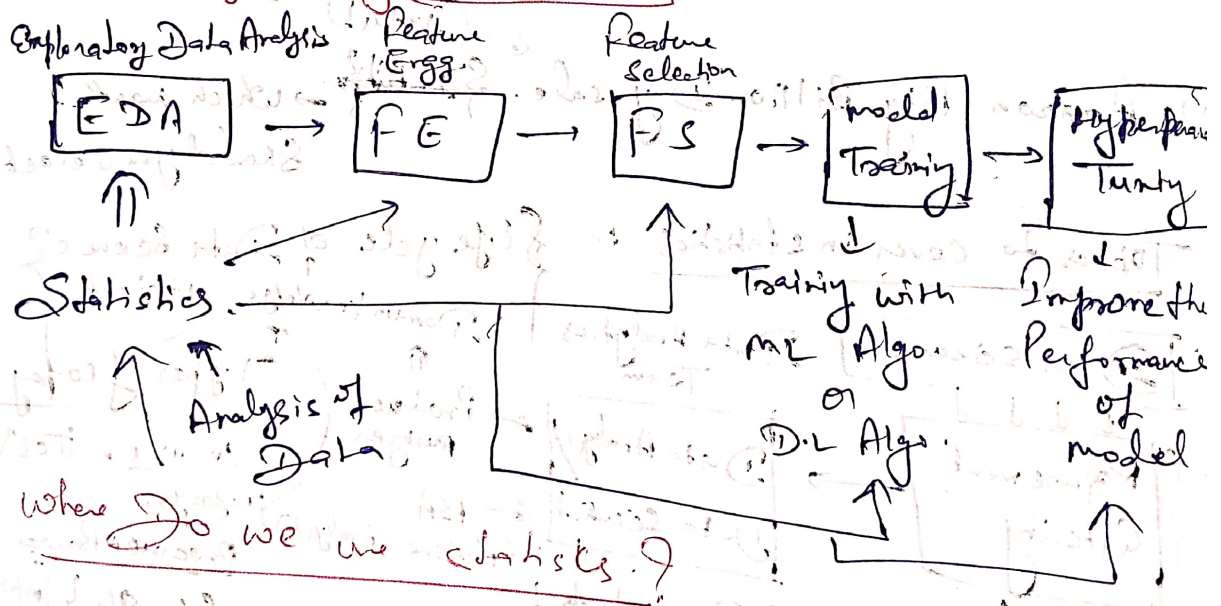 Exploratory Data Analysis
Feature
Engg.
Feature
Selection
EDA
FE
FS
Model
Training
Tuning
Statistics.
Analysis of
Data
Training with
ML Algo.
or
D.L Algo.
Improve the
Performance
of
model
Where Do we use statistics?